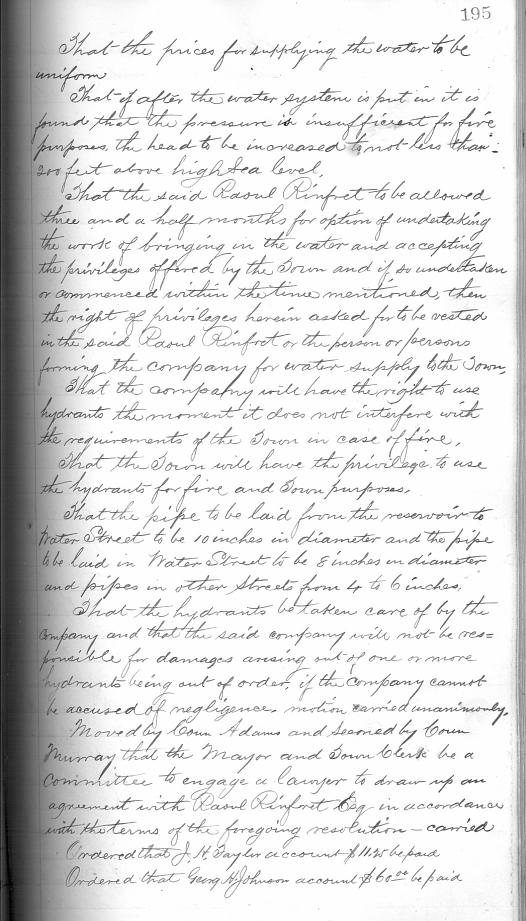 195
That the prices for supplying the water to be
uniform
That if after the water system is put in it is
found that the pressure is insufficient for fire
purposes, the head to be increased to not less than
200 feet above high Sea level.
That the said Raoul Rinfret to be allowed
three and a half months for option of undertaking
the work of bringing in the water and accepting
the privileges offered by the Town and if so undertaken
or commenced within the time mentioned, then
the right of privileges herein asked for to be vested
in the said Raoul Rinfret or the person or persons
forming the company for water supply to the Town.
That the company will have the right to use
hydrants the moment it does not interfere with
the requirements of the Town in case of fire.
That the Town will have the privilege to use
the hydrants for fire and Town purposes.
That the pipe to be laid from the reservoir to
Water Street to be 10 inches in diameter and the pipe
to be laid in Water Street to be 8 inches in diameter
and pipes in other Streets from 4 to 6 inches.
That the hydrants be taken care of by the
company and that the said company will not be res=
ponsible for damages arising out of one or more
hydrants being out of order, if the Company cannot
be accused of negligence. motion carried unanimously.
Moved by Coun Adams and seconed by Coun
Murray that the Mayor and Town Clerk be a
Committee to engage a lawyer to draw up an
agreement with Raoul Rinfret Esq in accordance
with the terms of the foregoing resolution - carried
Ordered that J. H. Taylor account $11.25 be paid
Ordered that Georg H Johnson account $60.00 be paid